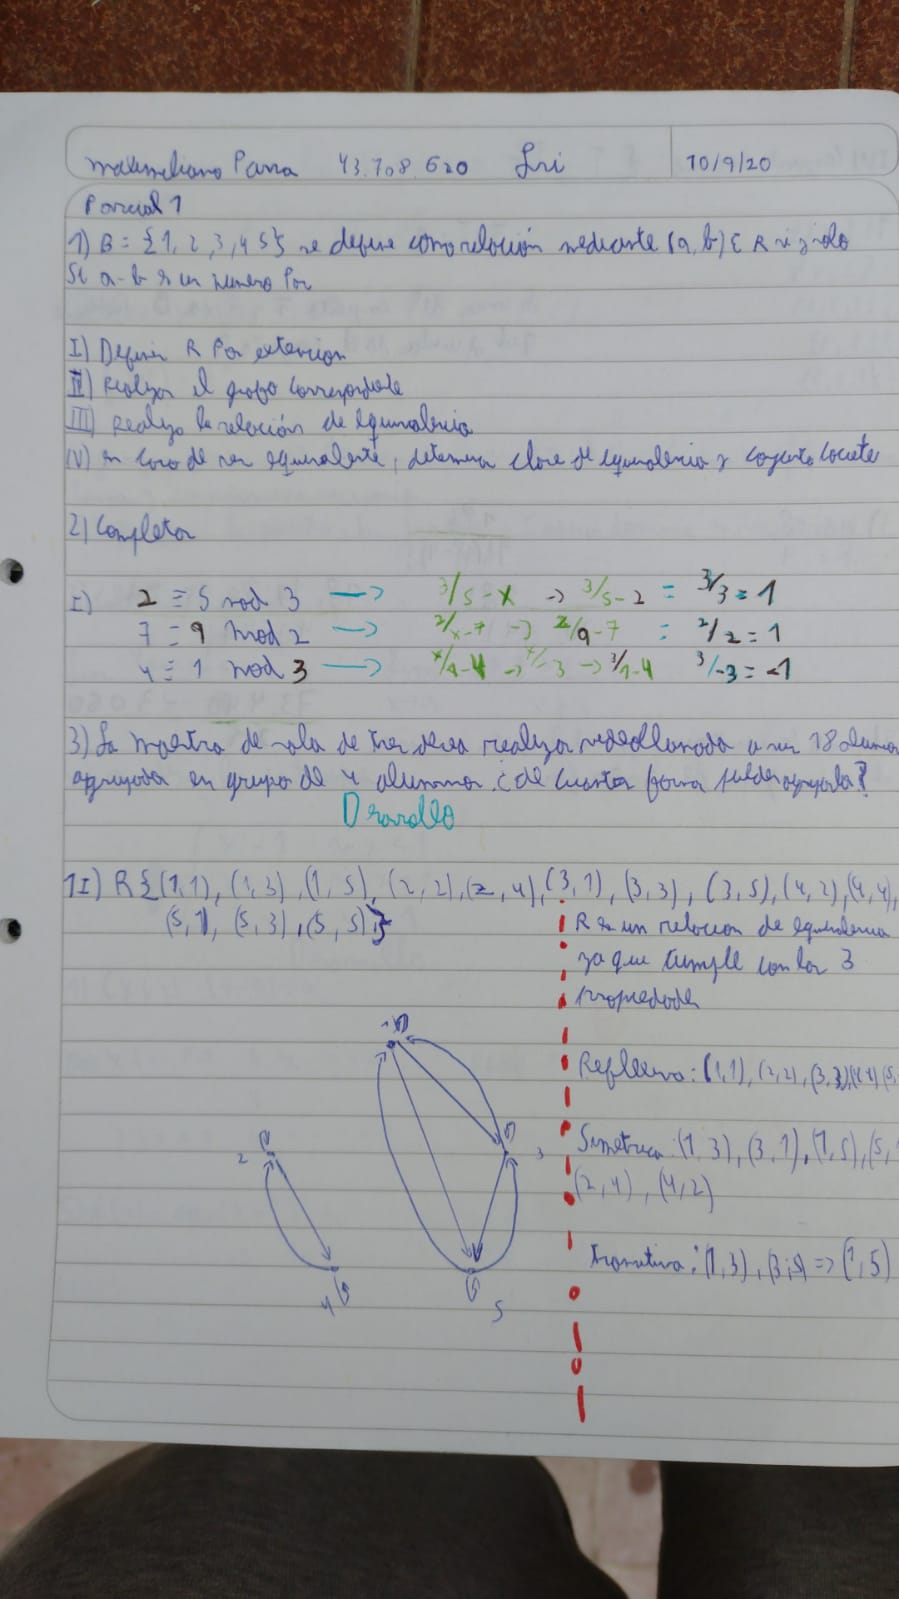 Maximiliano Parra 43.708.620 Lri 10/9/20
Parcial 1
1) B = {1, 2, 3, 4 5} se define como relación mediante (a, b) ∈ R si y solo
Si a-b es un numero Par
I) Definir R Por extencion
II) Realizar el grafo correspondiente
III) Realizo la relación de equivalencia
IV) en caso de ser equivalente, determinar clase de equivalencia y conjunto cociente
2) Completar
I) 2 ≡ 5 mod 3 → 3/5-x → 3/5-2 = 3/3 = 1
7 ≡ 9 mod 2 → 2/x-7 → 2/9-7 = 2/2 = 1
4 ≡ 1 mod 3 → x/1-4 → x/-3 → 3/1-4 3/-3 = -1
3) La maestra de sala de tres desea realizar videollamada a sus 18 alumnos
agrupados en grupo de 4 alumnos. ¿de cuantas forma puede agruparla?
Desarrollo
1I) R{(1,1), (1,3), (1,5), (2,2), (2,4), (3,1), (3,3), (3,5), (4,2), (4,4),
(5,1), (5,3), (5,5)}
R es un relacion de equivalencia
ya que cumple con las 3
propiedades
1
Reflexiva: (1,1), (2,2), (3,3), (4,4) (5,
2
3
Simetrica: (1,3), (3,1), (1,5), (5,
(2,4), (4,2)
Transitiva: (1,3), (3,5) => (1,5)
4
5